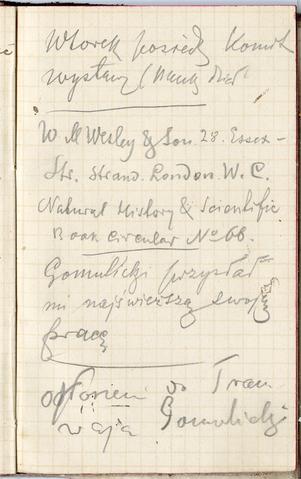 Wtorek pośiedz Komit
wystawy (
W M Wesley & Son 28. Essex-
Str. Strand. London. W. C.
Natural History & Scientific
Book Circular No 66.
Gomulicki przysłał
mi najświeższą swoją
pracę
do Tram
waja Gomolidzi